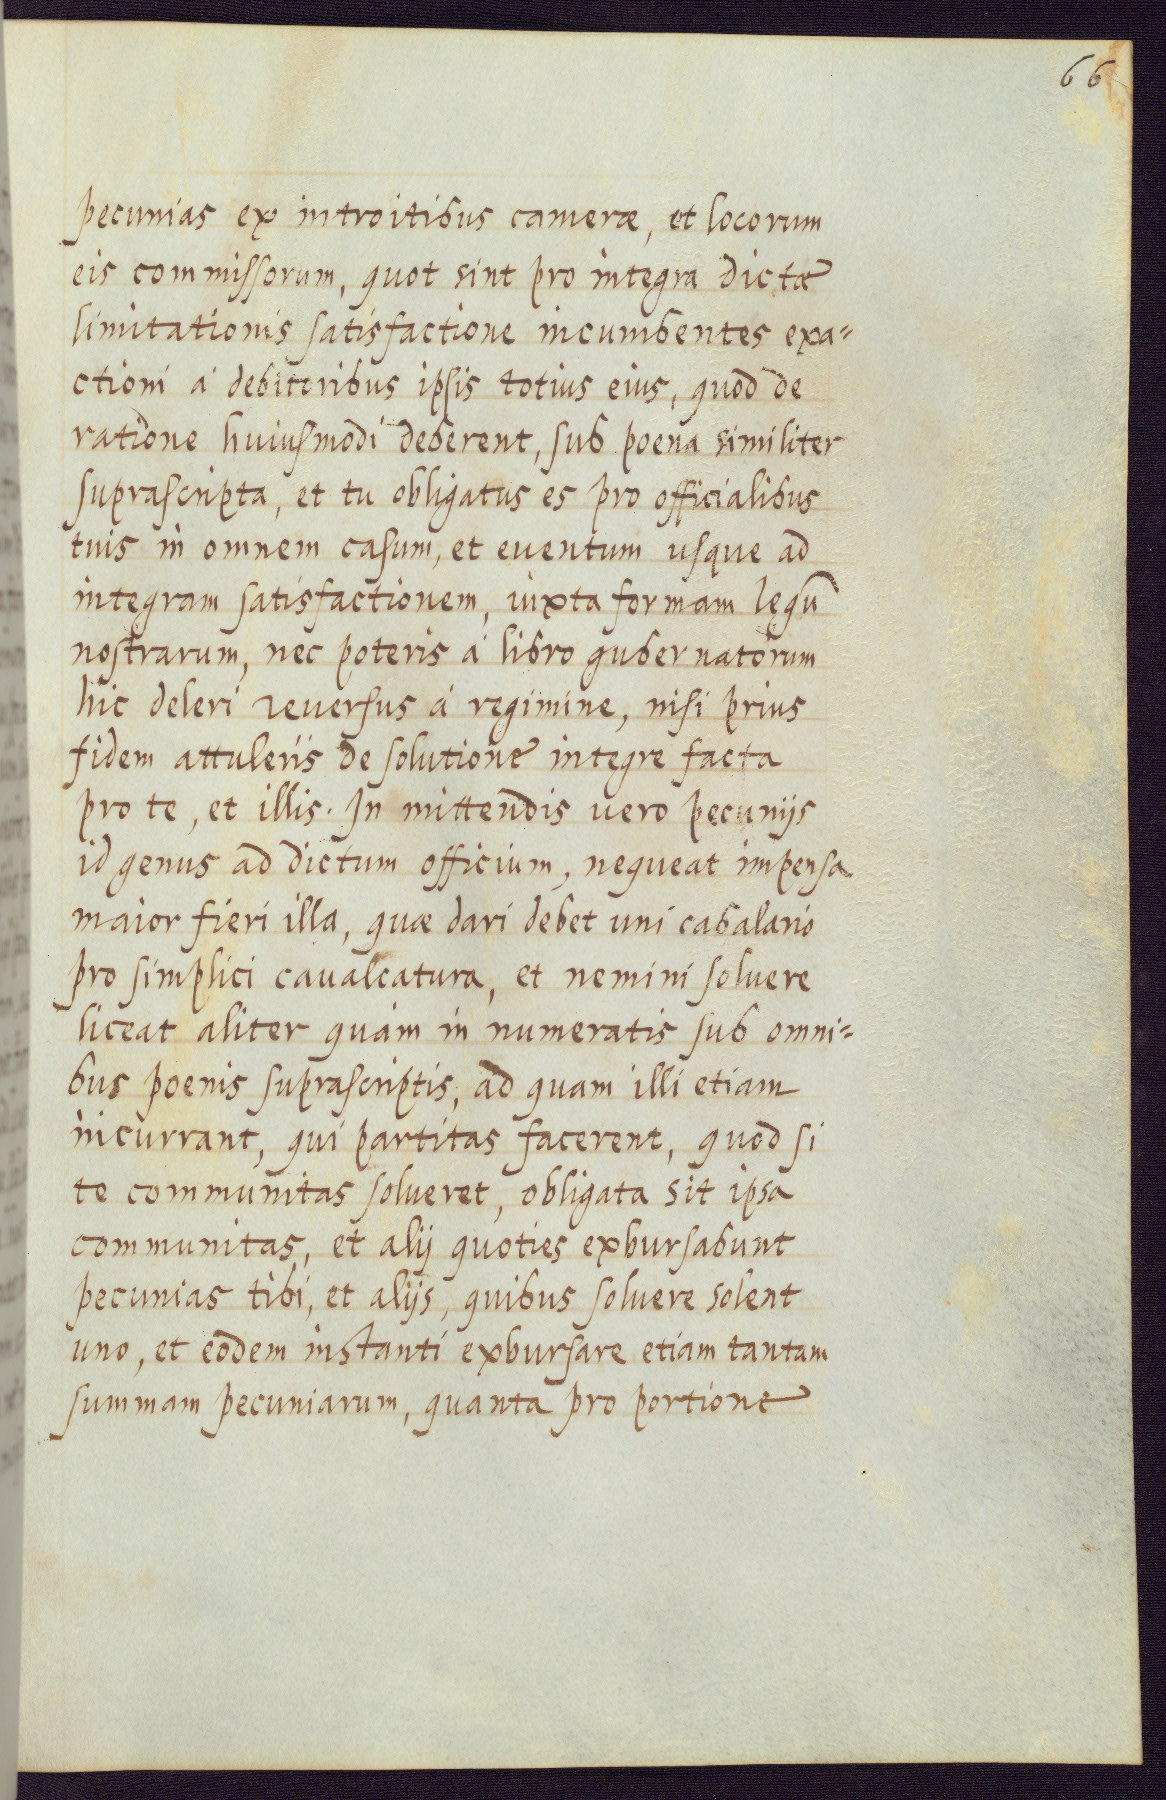 66
pecunias ex introitibus cameræ, et locorum
eis commissorum, quot sint pro integra dictæ
limitationis satisfactione incumbentes exa=
ctioni à debitoribus ipsis totius eius, quod de
ratione huiusmodi deberent, sub poena similiter
suprascripta, et tu obligatus es pro officialibus
tuis in omnem casum, et euentum usque ad
integram satisfactionem, iuxta formam legū
nostrarum, nec poteris à libro gubernatorum
hic deleri reuersus à regimine, nisi prius
fidem attuleris de solutione integre facta
pro te, et illis. In mittendis uero pecunijs
id genus ad dictum officium, nequeat impensa
maior fieri illa, quæ dari debet uni cabalario
pro simplici caualcatura, et nemini soluere
liceat aliter quàm in numeratis sub omni=
bus poenis suprascriptis, ad quam illi etiam
incurrant, qui partitas facerent, quod si
te communitas solueret, obligata sit ipsa
communitas, et alij quoties exbursabunt
pecunias tibi, et alijs, quibus soluere solent
uno, et eodem instanti exbursare etiam tantam
summam pecuniarum, quanta pro portione